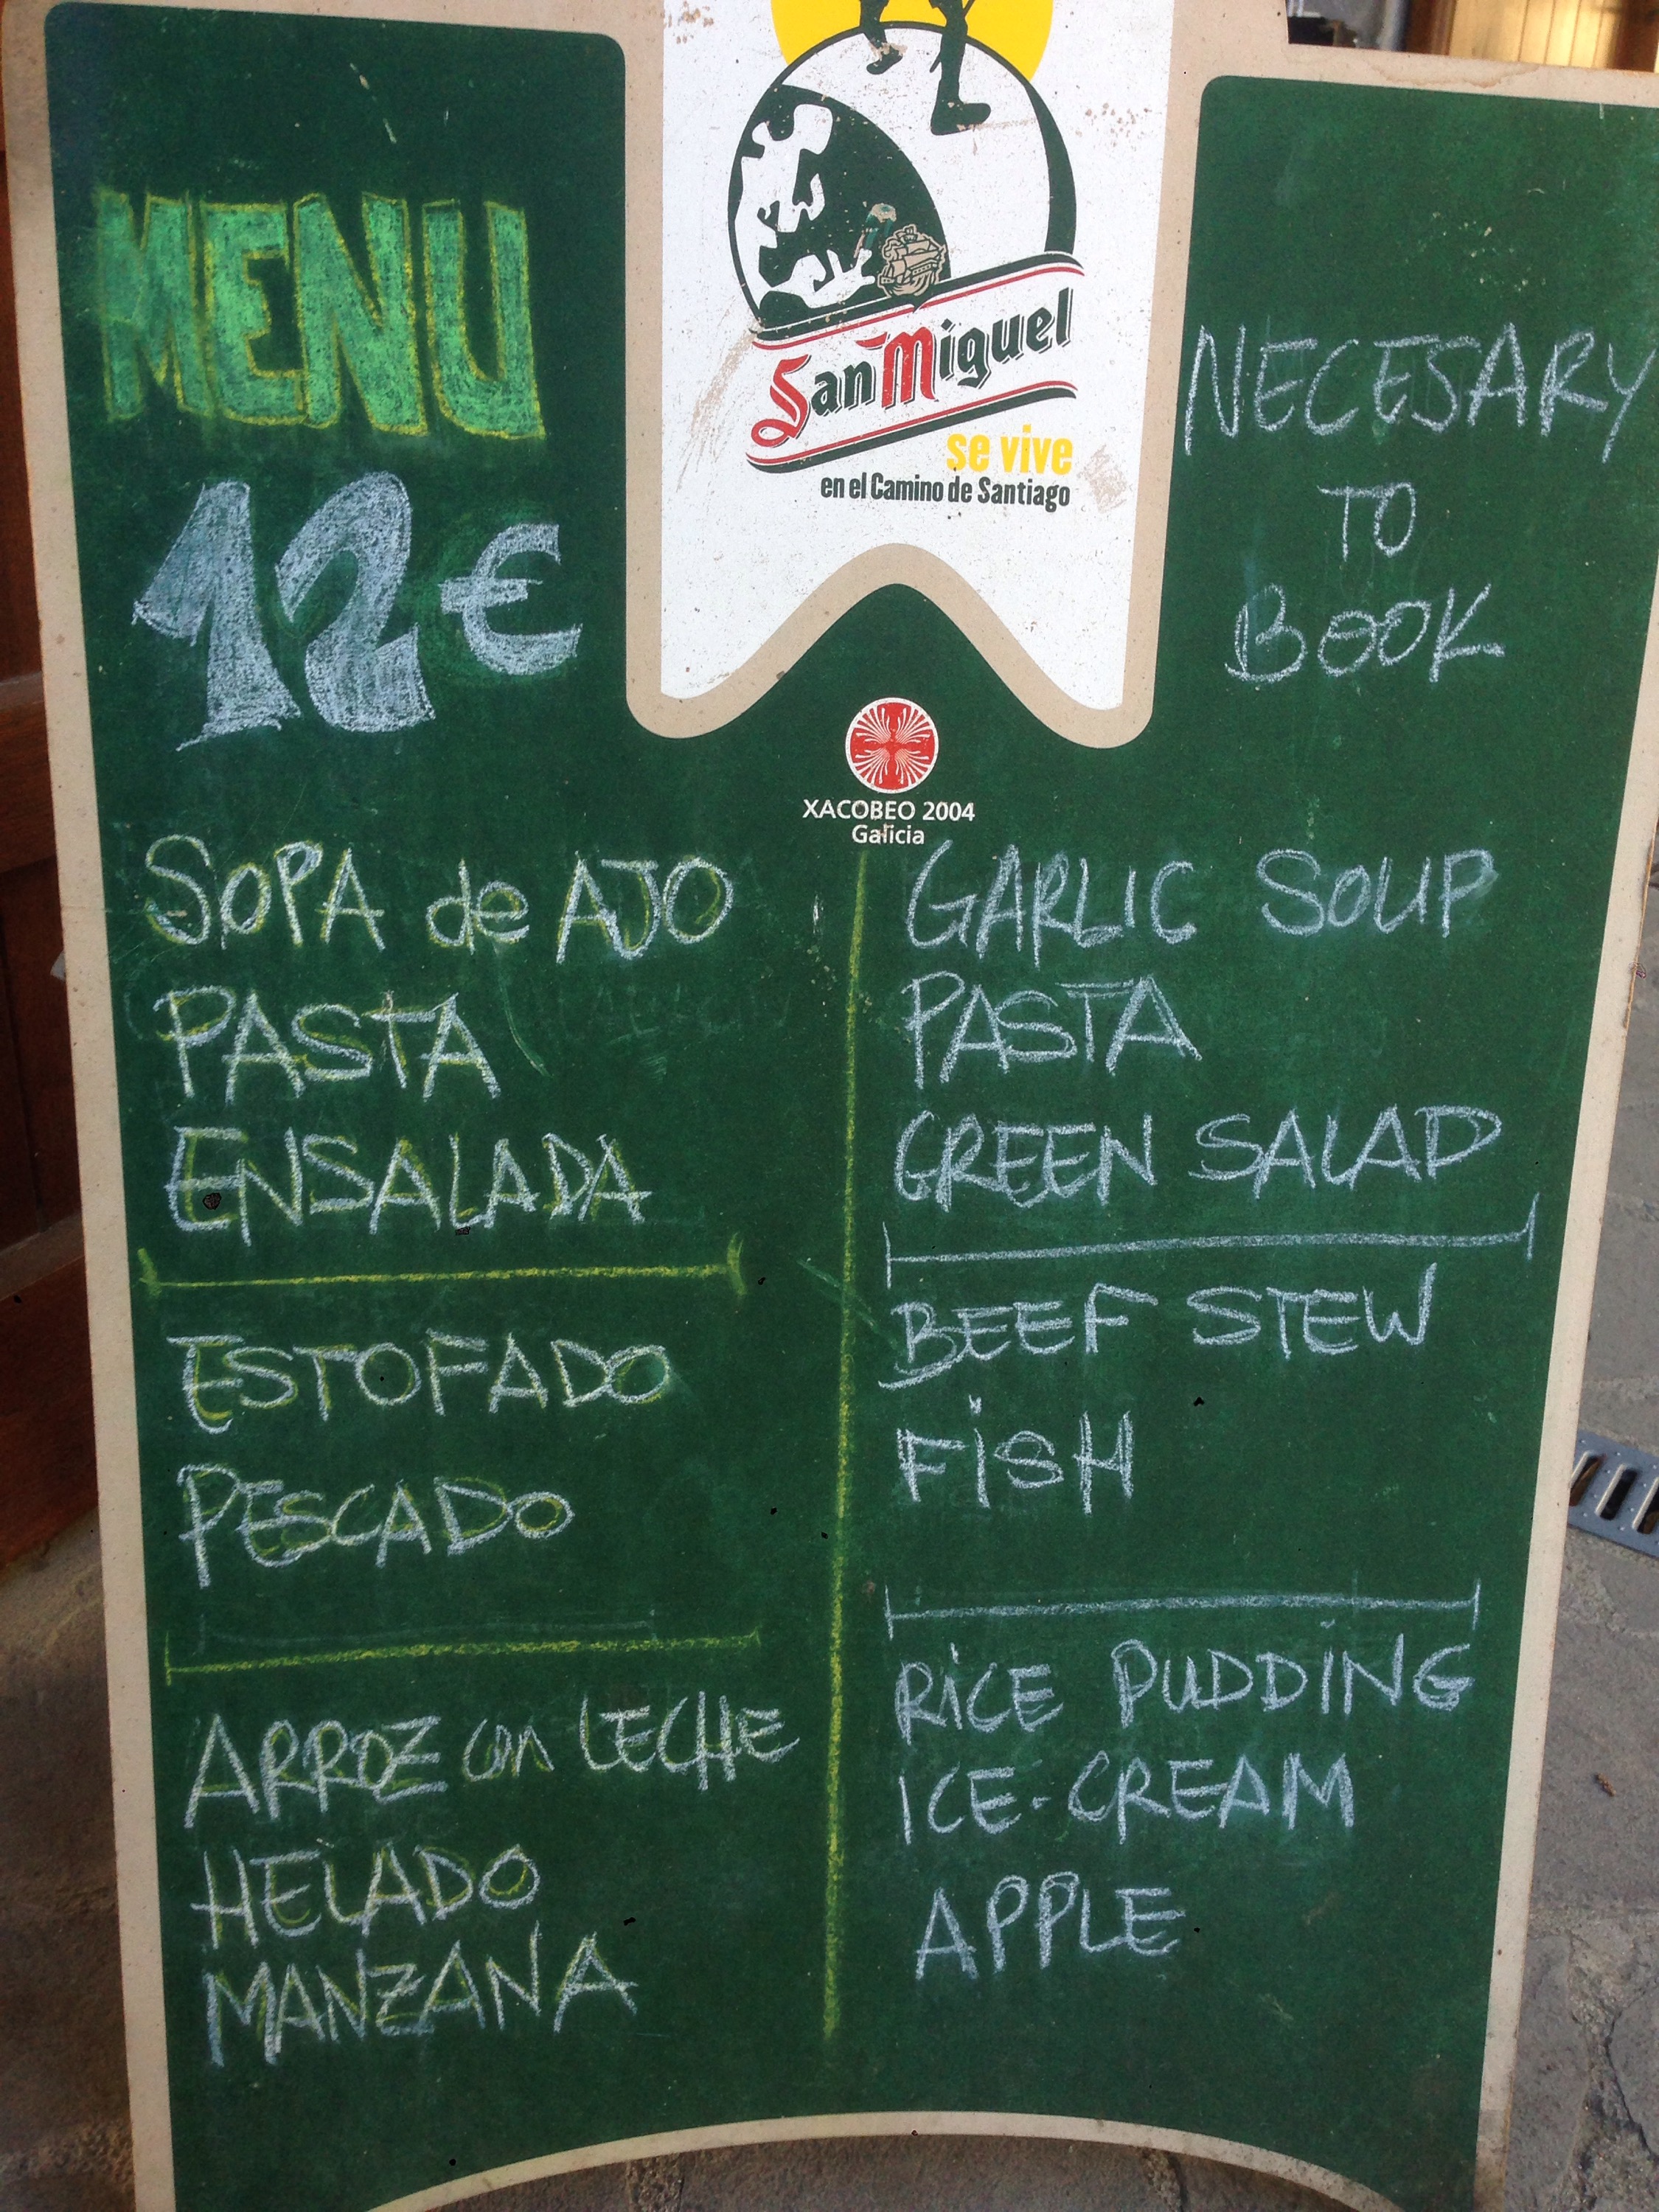 San Miguel
se vive
en el Camino de Santiago
MENU
12€
NECESARY
TO
BOOK
XACOBEO 2004
Galicia
SOPA de AJO
PASTA
ENSALADA
ESTOFADO
PESCADO
ARROZ con LECHE
HELADO
MANZANA
GARLIC SOUP
PASTA
GREEN SALAD
BEEF STEW
FiSH
RiCE PUDDiNG
iCE-CREAM
APPLE